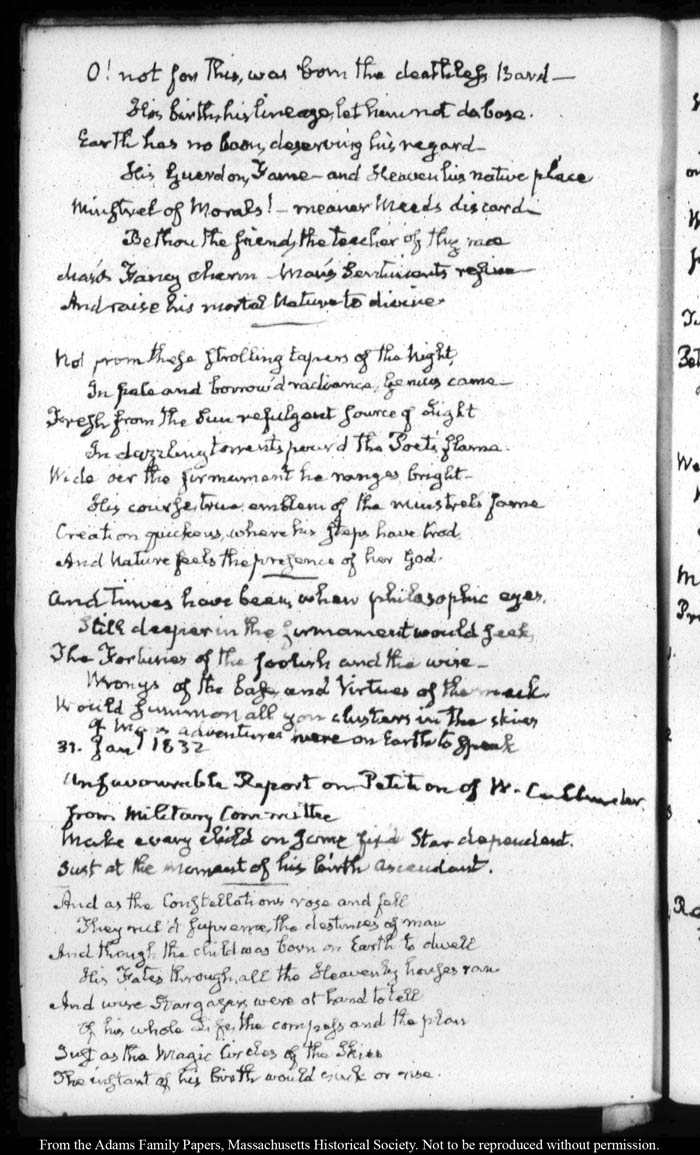 O! not for this, was born the deathless Bard—
His birth, his lineage, let him not debase.
Earth has no boon, deserving his regard—
His Guerdon, Fame—and Heaven his native place
Minstrel of Morals!—meaner Meeds discard—
Be thou the friend, the teacher of thy race
Man's Fancy charm—Man's Sentiments refine—
And raise his mortal Nature to divine.
Not from these strolling tapers of the Night,
In pale and borrow'd radiance, Genius came—
Fresh from the Sun refulgent source of Light
In dazzling torrents pour'd the Poet's flame.
Wide oer the firmament he ranges bright—
His course, true emblem of the minstrel's fame
Creation quickens, where his steps have trod,
And Nature feels the presence of her God.
And Times have been, when philosophic eyes,
Still deeper in the firmament would seek,
The Fortunes of the foolish and the wise—
Wrongs of the base, and Virtues of the meek
Would summon all yon clusters in the skies
Of adventures were on Earth to speak
31. Jany 1832
Unfavourable Report on Petition of W.
from Military Committee
Make every child on some fix'd Star dependent.
Just at the moment of his birth ascendant.
And as the Constellations rose and fell
They rul'd supreme, the destinies of man
And though the child was born on Earth to dwell
His Fates through, all the Heavenly houses ran
And wise Stargazers were at hand to tell
Of his whole Life, the compass and the plan
Just as the Magic Circles of the Skies
The instant of his birth would sink or rise.
From the Adams Family Papers, Massachusetts Historical Society. Not to be reproduced without permission.